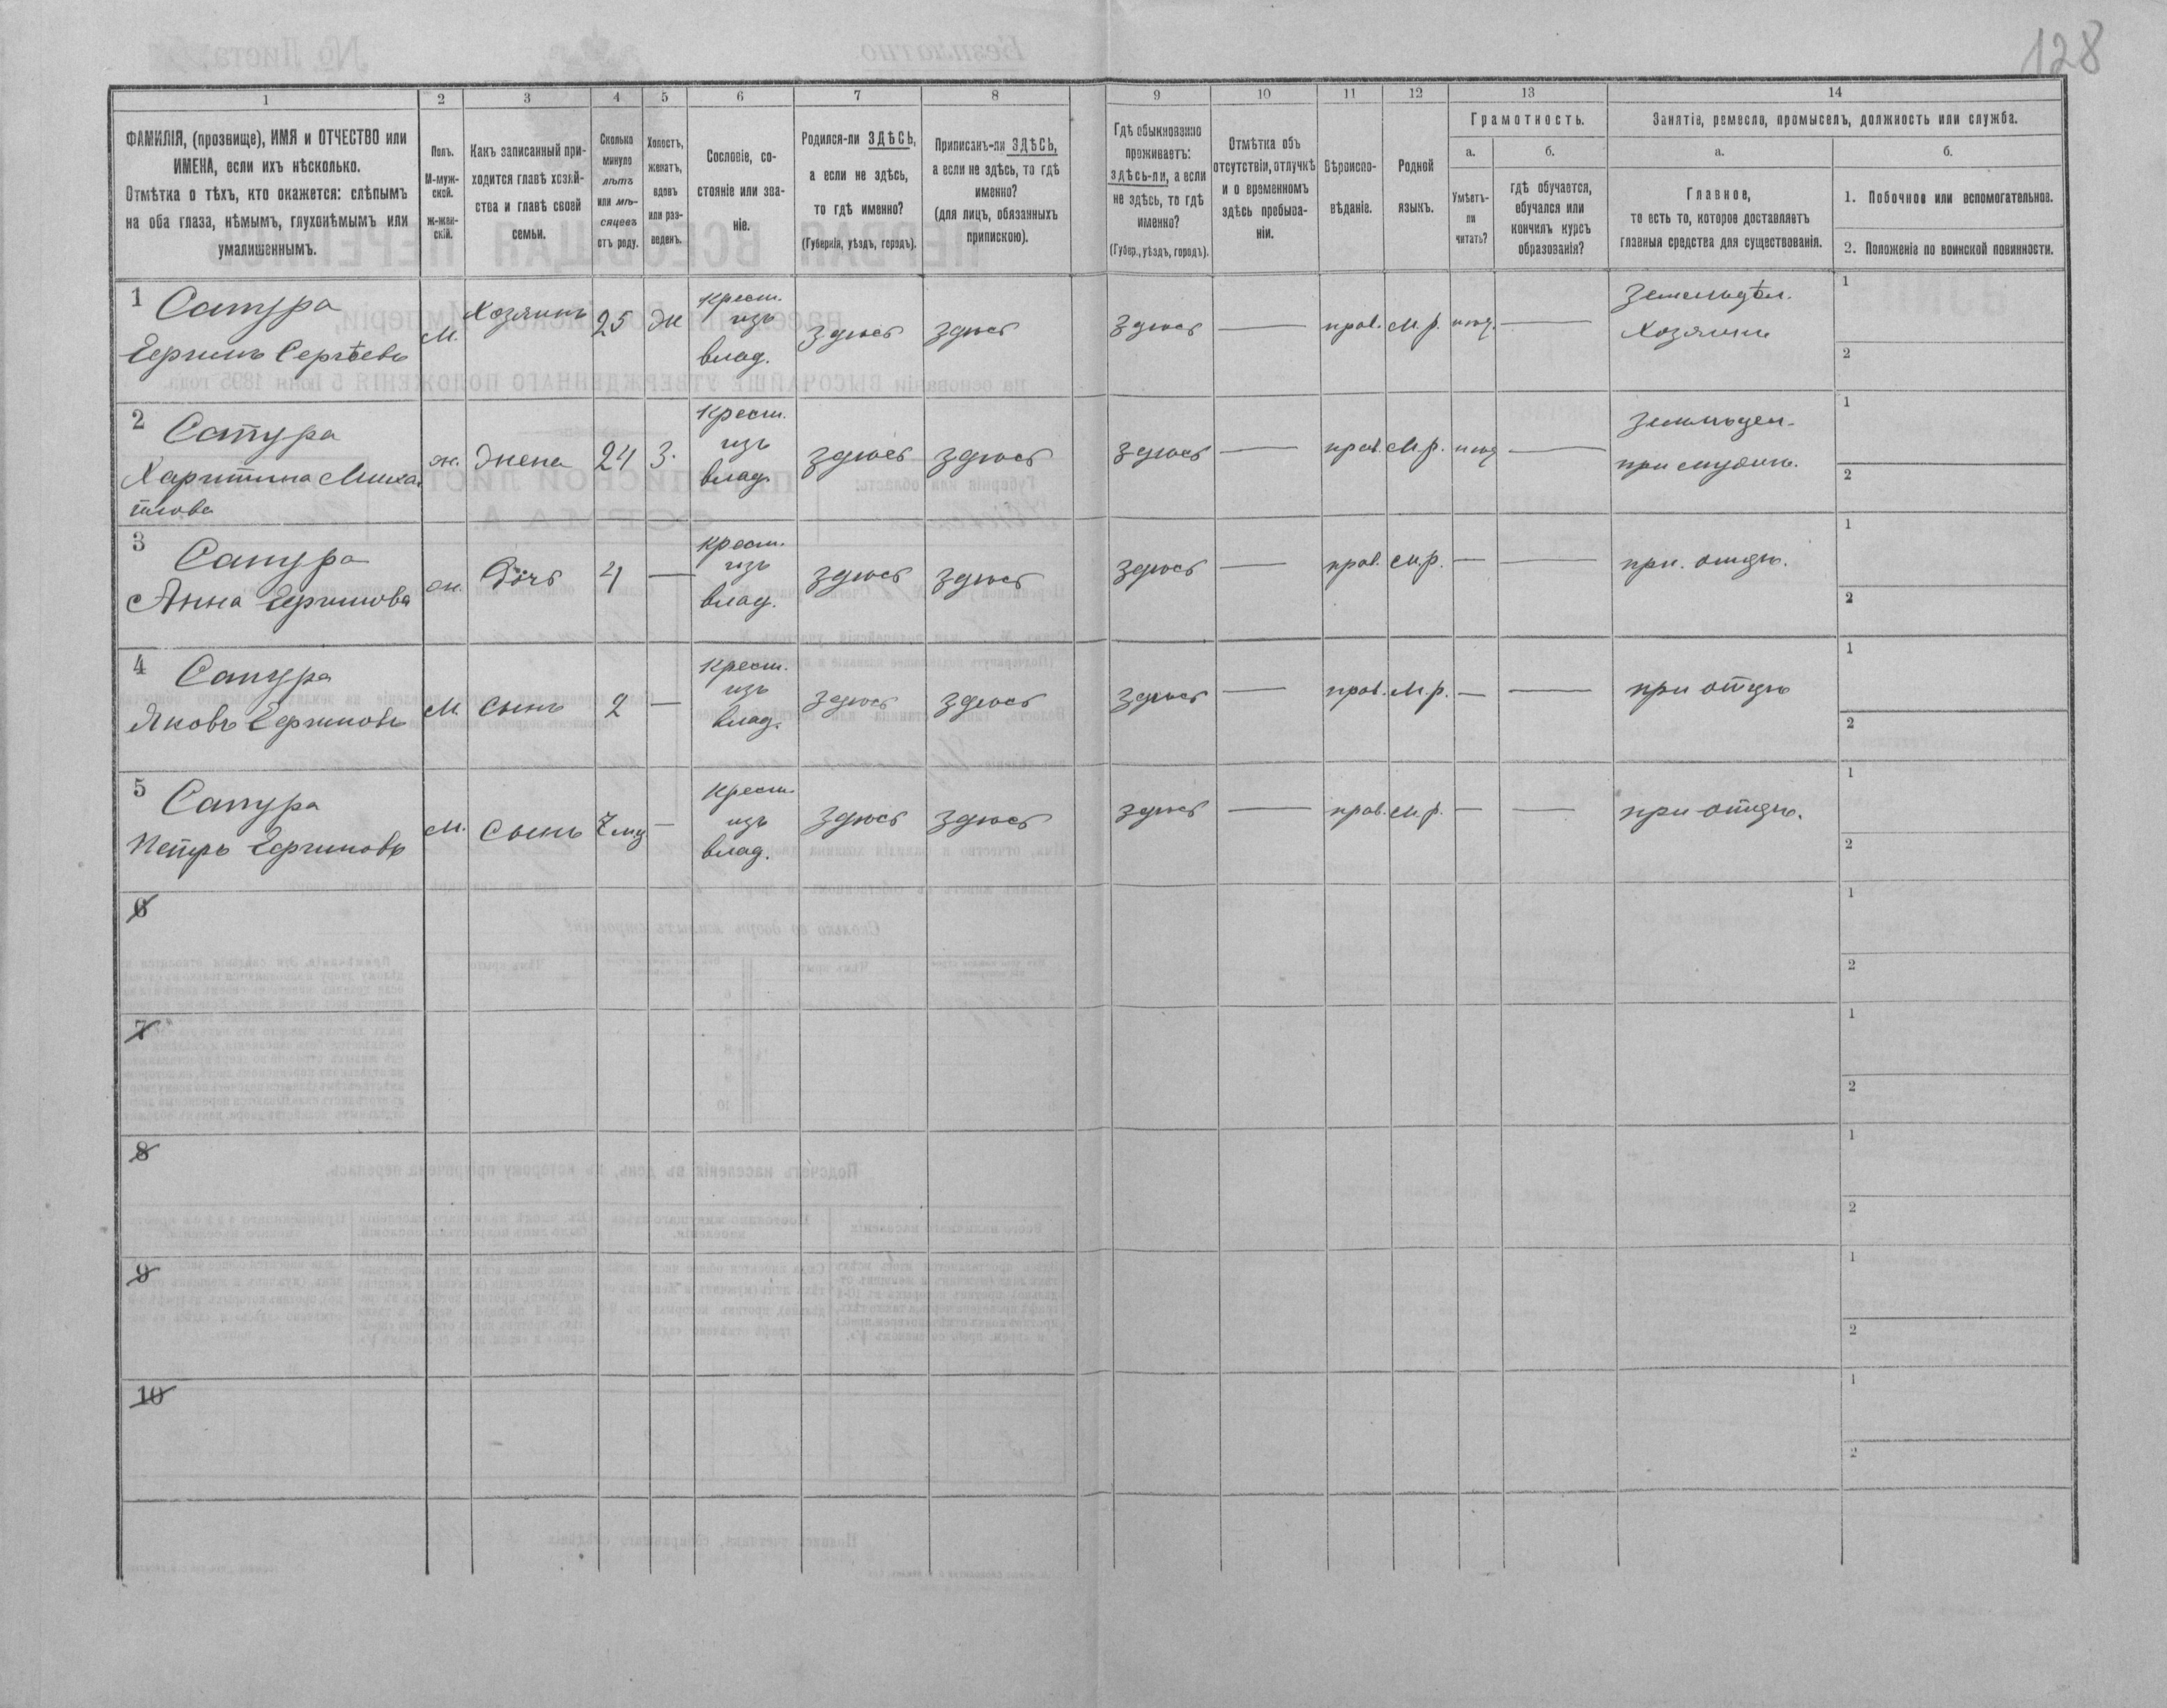 128
1 2 3 4 5 6 7 8 9 10 11 12 13 14
ФАМИЛІЯ, (прозвище), ИМЯ и ОТЧЕСТВО или
ИМЕНА, если ихъ нѣсколько.
Отмѣтка о тѣхъ, кто окажется: слѣпымъ
на оба глаза, нѣмымъ, глухонѣмымъ или
умалишеннымъ.
Полъ.
М-муж-
ской.
ж-жен-
скій.
Какъ записанный при-
ходится главѣ хозяй-
ства и главѣ своей
семьи.
Сколько
минуло
лѣтъ
или мѣ-
сяцевъ
отъ роду.
Холостъ,
женатъ,
вдовъ
или раз-
веденъ.
Сословіе, со-
стояніе или зва-
ніе.
Родился-ли ЗДѢСЬ,
а если не здѣсь,
то гдѣ именно?
(Губернія, уѣздъ, городъ).
Приписанъ-ли ЗДѢСЬ,
а если не здѣсь, то гдѣ
именно?
(для лицъ, обязанныхъ
припискою).
Гдѣ обыкновенно
проживаетъ:
здѣсь-ли, а если
не здѣсь, то гдѣ
именно?
(Губер., уѣздъ, городъ).
Отмѣтка объ
отсутствіи, отлучкѣ
и о временномъ
здѣсь пребыва-
ніи.
Вѣроиспо-
вѣданіе.
Родной
языкъ.
Грамотность.
а.
Умѣетъ-
ли
читать?
б.
гдѣ обучается,
обучался или
кончилъ курсъ
образованія?
Занятіе, ремесло, промыселъ, должность или служба.
а.
Главное,
то есть то, которое доставляетъ
главныя средства для существованія.
б.
1. Побочное или вспомогательное.
2. Положеніе по воинской повинности.
1 Сапура
Ефимъ Сергѣевъ
М. Хозяинъ 25 Ж
Крест.
изъ
влад.
здѣсь здѣсь здѣсь — прав. М.р. —
Земледѣл.
Хозяинъ
1
2
2 Сапура
Харитина Михаи
лова
ж. Жена 24 З.
Крест.
изъ
влад.
здѣсь здѣсь здѣсь — прав. М.р. —
при мужѣ.
1
2
3 Сапура
Анна Ефимова
ж. Дочь 4 —
Крест.
изъ
влад.
здѣсь здѣсь здѣсь — прав. М.р. — —
при отцѣ.
1
2
4 Сапура
Яковъ Ефимовъ
М. Сынъ 2 —
Крест.
изъ
влад.
здѣсь здѣсь здѣсь — прав. М.р. — —
при отцѣ
1
2
5 Сапура
Петръ Ефимовъ
М. Сынъ —
Крест.
изъ
влад.
здѣсь здѣсь здѣсь — прав. М.р. — —
при отцѣ.
1
2
6
1
2
7
1
2
8
1
2
9
1
2
10
1
2